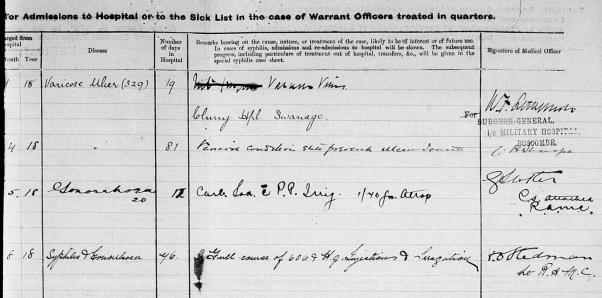 For Admissions to Hospital or to the Sick List in the case of Warrant Officers treated in quarters.
arged from
ospital
Month Year
Disease
Number
of days
in
Hospital
Remarks bearing on the cause, nature, or treatment of the case, likely to be of interest or of future use.
In cases of syphilis, admissions and re-admissions to hospital will be shown. The subsequent
progress, including particulars of treatment out of hospital, transfers, &c., will be given in
the special syphilis case sheet.
Signature of Medical Officer
18 Varicose Ulcer (329) 19 Veins
Hpl Swanage.
For
SURGEON-GENERAL,
i/c MILITARY HOSPITAL,
BOSCOMBE.
4 18 " 81 Varicose condition still present
5 18 Gonorrhoea 12 Carb. & P.P. Irrig. 1/40 gr.
20
attached
R.A.M.C.
8 18 Syphilis & Gonorrhoea 46. Full course of 606 & Hg. Injections & Irrigation
Stedman
R.A.M.C.